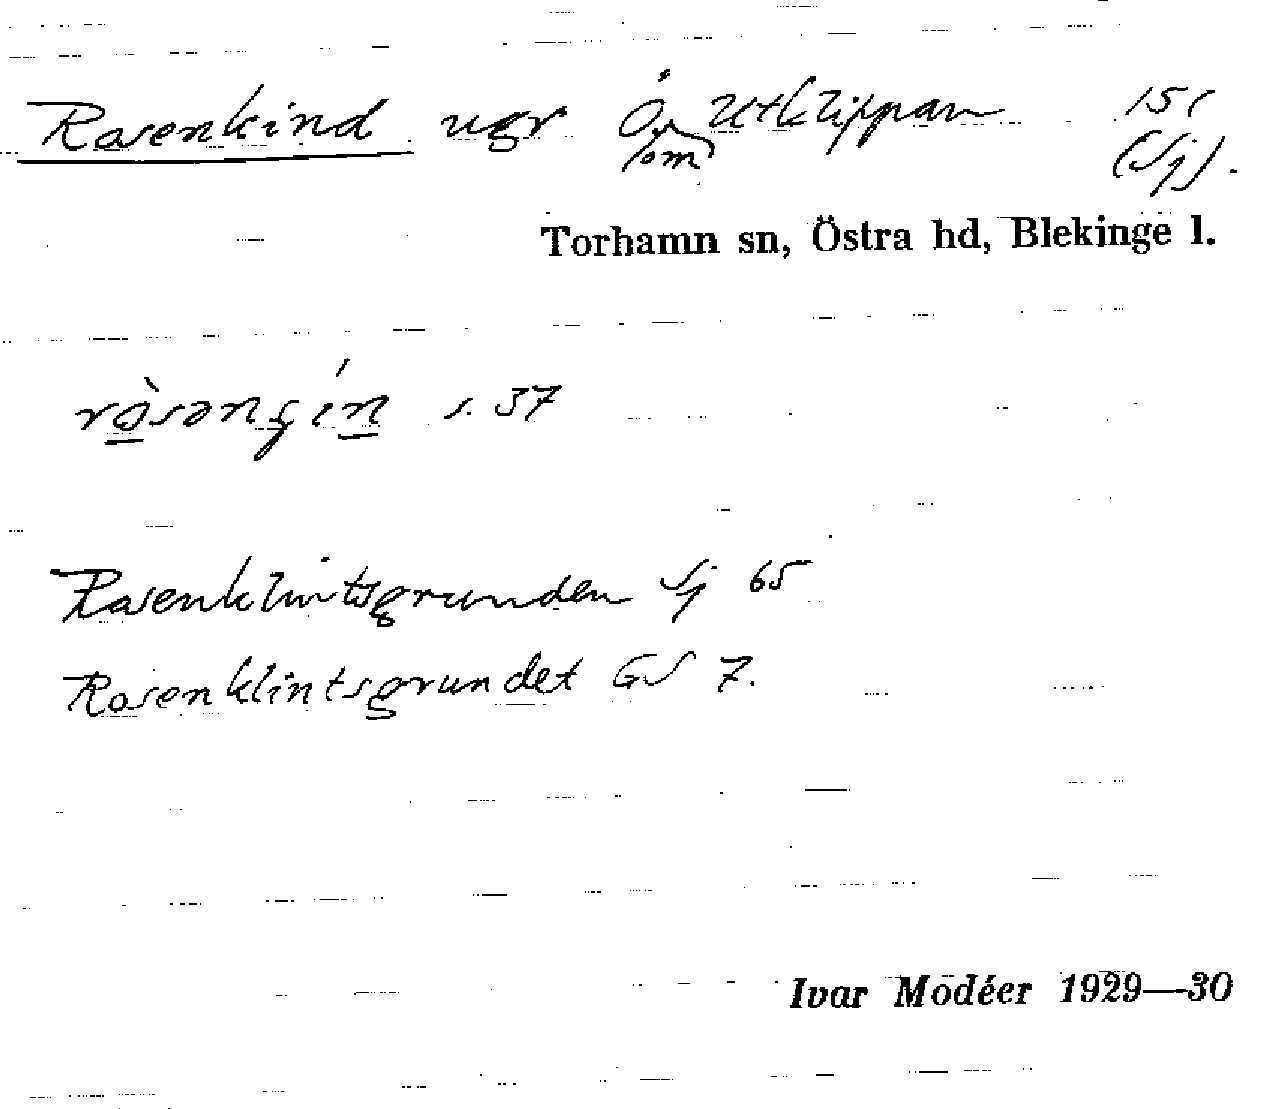 Rosenkind ugr Ö om Utklippan 151
(Sj).
Torhamn sn, Östra hd, Blekinge l.
s. 37
Rosenklintsgrunden Sj 65
Rosenklintsgrundet GS 7.
Ivar Modéer 1929—30